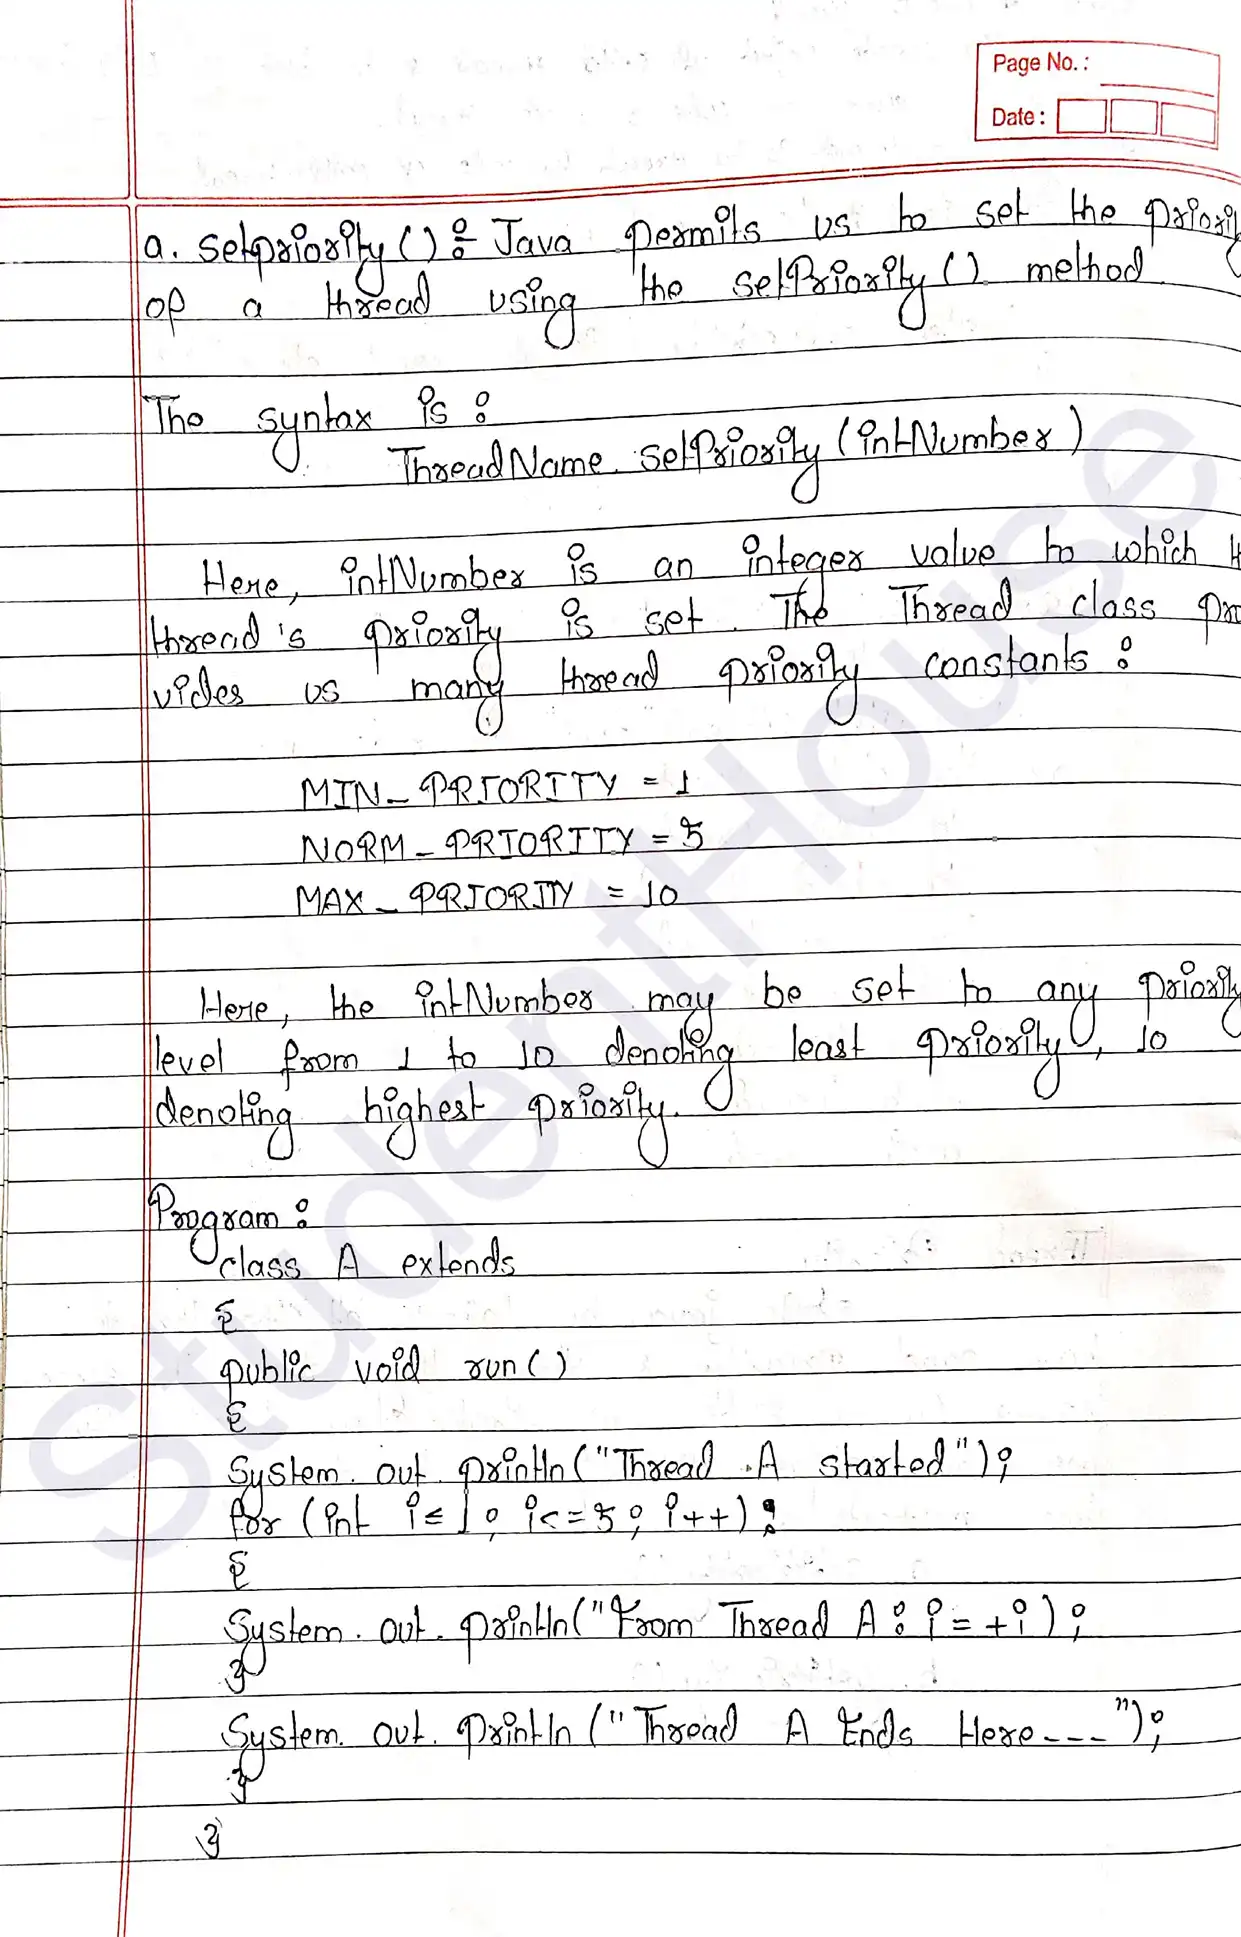 Page No. :
Date :
a. setpriority() : Java permits us to set the priority
of a thread using the setPriority() method.
The syntax is :
ThreadName. setPriority (intNumber)
Here, intNumber is an integer value to which
thread's priority is set. The Thread class pro
vides us many thread priority constants :
MIN_PRIORITY = 1
NORM_PRIORITY = 5
MAX_PRIORITY = 10
Here, the intNumber may be set to any priority
level from 1 to 10 denoting least priority, 10
denoting highest priority.
Program :
class A extends
{
public void run()
{
System. out. println("Thread A started");
for (int i= 1; i<=5; i++);
{
System. out. println("From Thread A : i = +i);
}
System. out. println ("Thread A Ends Here---");
}
}
StudentHouse